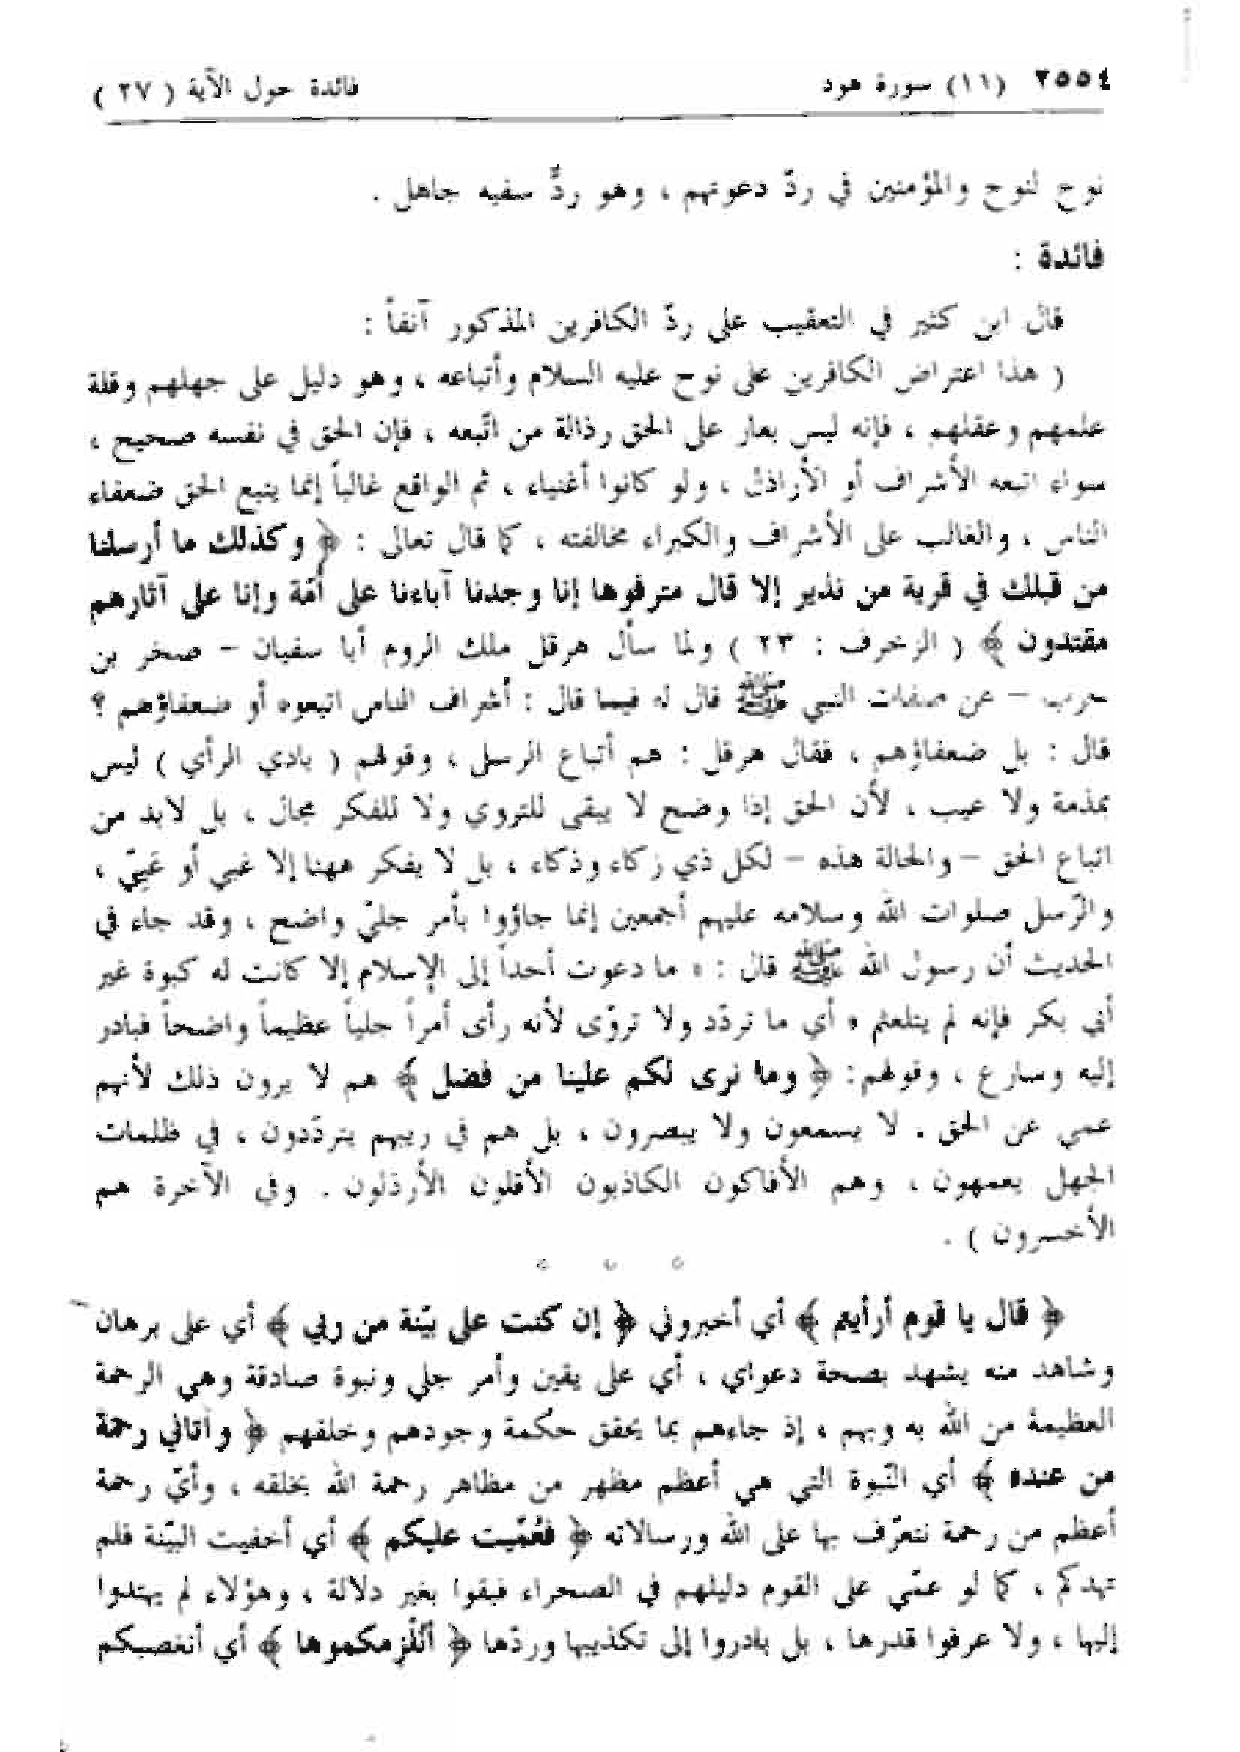 ٢٥٥٤ (١١) سورة هود فائدة حول الآية ( ٢٧ )
نوح لنوح والمؤمنين في ردّ دعوتهم ، وهو ردٌّ سفيه جاهل .
فائدة :
قال ابن كثير في التعقيب على ردّ الكافرين المذكور آنفاً :
( هذا اعتراض الكافرين على نوح عليه السلام وأتباعه ، وهو دليل على جهلهم وقلة
علمهم وعقلهم ، فإنه ليس بعار على الحق رذالة من اتّبعه ، فإن الحق في نفسه صحيح ،
سواء اتبعه الأشراف أو الأراذل ، ولو كانوا أغنياء ، ثم الواقع غالباً إنما يتبع الحق ضعفاء
الناس ، والغالب على الأشراف والكبراء مخالفته ، كما قال تعالى : ﴿ وكذلك ما أرسلنا
من قبلك في قرية من نذير إلا قال مترفوها إنا وجدنا آباءنا على أمّة وإنا على آثارهم
مقتدون ﴾ ( الزخرف : ٢٣ ) ولما سأل هرقل ملك الروم أبا سفيان – صخر بن
حرب – عن صفات النبي ﷺ قال له فيما قال : أشراف الناس اتبعوه أو ضعفاؤهم ؟
قال : بل ضعفاؤهم ، فقال هرقل : هم أتباع الرسل ، وقولهم ( بادي الرأي ) ليس
بمذمة ولا عيب ، لأن الحق إذا وضح لا يبقى للتروي ولا للفكر مجال ، بل لابد من
اتباع الحق – والحالة هذه – لكل ذي زكاء وذكاء ، بل لا يفكر ههنا إلا غبي أو عَيِيّ ،
والرّسل صلوات الله وسلامه عليهم أجمعين إنما جاؤوا بأمر جليّ واضح ، وقد جاء في
الحديث أن رسول الله ﷺ قال : « ما دعوت أحداً إلى الإسلام إلا كانت له كبوة غير
أبي بكر فإنه لم يتلعثم » أي ما تردّد ولا تروّى لأنه رأى أمراً جلياً عظيماً واضحاً فبادر
إليه وسارع ، وقولهم: ﴿ وما نرى لكم علينا من فضل ﴾ هم لا يرون ذلك لأنهم
عمي عن الحق . لا يسمعون ولا يبصرون ، بل هم في ريبهم يتردّدون ، في ظلمات
الجهل يعمهون ، وهم الأفاكون الكاذبون الأقلون الأرذلون . وفي الآخرة هم
الأخسرون ) .
﴿ قال يا قوم أرأيتم ﴾ أي أخبروني ﴿ إن كنت على بيّنة من ربي ﴾ أي على برهان
وشاهد منه يشهد بصحة دعواي ، أي على يقين وأمر جلي ونبوة صادقة وهي الرحمة
العظيمة من الله به وبهم ، إذ جاءهم بما يحقق حكمة وجودهم وخلقهم ﴿ وآتاني رحمة
من عنده ﴾ أي النّبوة التي هي أعظم مظهر من مظاهر رحمة الله بخلقه ، وأيّ رحمة
أعظم من رحمة نتعرّف بها على الله ورسالاته ﴿ فعُمّيت عليكم ﴾ أي أخفيت البيّنة فلم
تهدكم ، كما لو عمّي على القوم دليلهم في الصحراء فبقوا بغير دلالة ، وهؤلاء لم يهتدوا
إليها ، ولا عرفوا قدرها ، بل بادروا إلى تكذيبها وردّها ﴿ أنُلْزمكموها ﴾ أي أنغصبكم